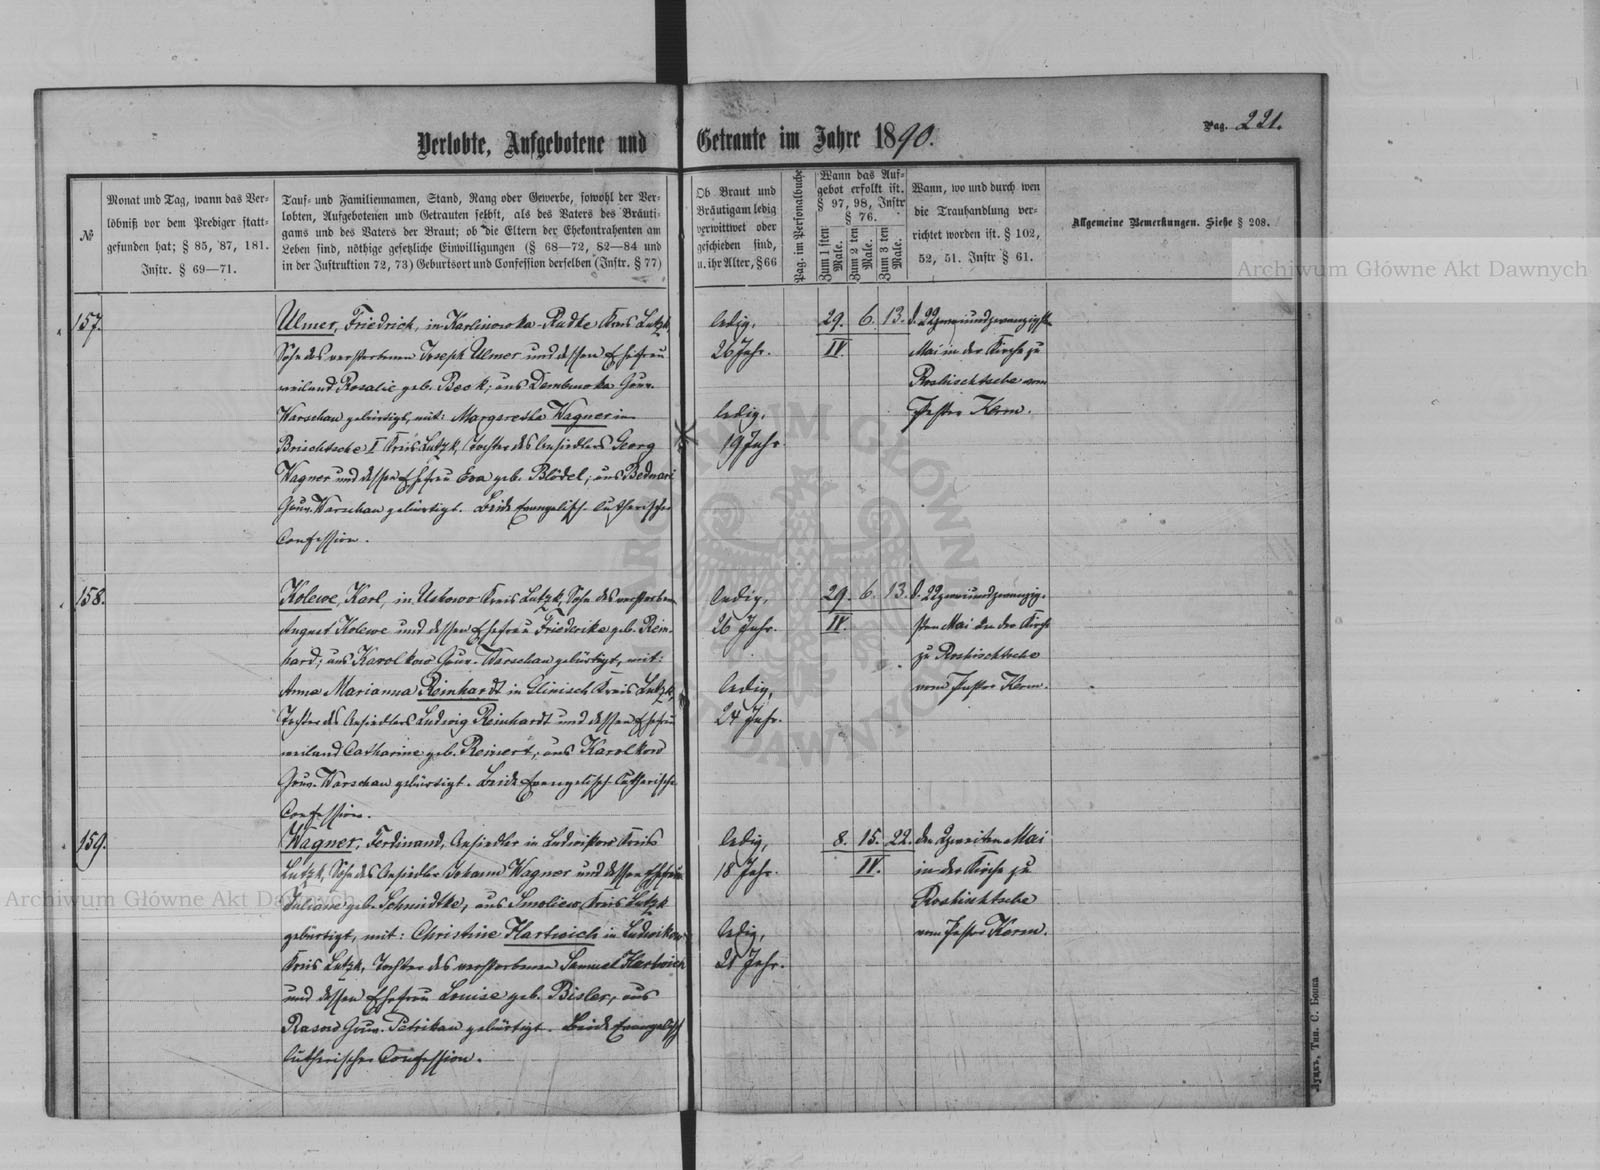 Verlobte, Aufgebotene und Getraute im Jahre 1890.
Pag. 221.
№
Monat und Tag, wann das Ver-
löbniß vor dem Prediger statt-
gefunden hat; § 85, 87, 181.
Instr. § 69—71.
Tauf- und Familiennamen, Stand, Rang oder Gewerbe, sowohl der Ver-
lobten, Aufgebotenen und Getrauten selbst, als des Vaters des Bräuti-
gams und des Vaters der Braut; ob die Eltern der Ehekontrahenten am
Leben sind, nöthige gesetzliche Einwilligungen (§ 68—72, 82—84 und
in der Justruktion 72, 73) Geburtsort und Confession derselben (Instr. § 77)
Ob Braut und
Bräutigam ledig
verwittwet oder
geschieden sind,
u. ihr Alter, § 66
Pag. im Personalbuche
Wann das Auf-
gebot erfolkt ist.
§ 97, 98, Instr
§ 76.
Zum 1 sten Male.
Zum 2 ten Male.
Zum 3 ten Male.
Wann, wo und durch wen
die Trauhandlung ver-
richtet worden ist. § 102,
52, 51. Instr § 61.
Allgemeine Bemerkungen. Siehe § 208.
157.
Ulmer, Friedrich, in Karlinowka-Rudke Kreis Lutzk,
Sohn des verstorbenen Joseph Ulmer und dessen Ehefrau
weiland Rosalie geb. Beck; aus Dembowka Gouv.
Warschau gebürtigt, mit: Margaretha Wagner in
Brischtsche I Kreis Lutzk, Tochter des Ansiedlers Georg
Wagner und dessen Ehefrau Eva geb. Blödel; aus Bednari
Gouv. Warschau gebürtigt. Beide Evangelisch-Lutherischer
Confession.
ledig,
26 Jahr.
ledig,
19 Jahr
29. 6. 13.
IV.
d. 22 zweiundzwanzigsten
Mai in der Kirche zu
Roshischtsche vom
Pastor Kerm.
158.
Kolewe, Karl, in Uskowo Kreis Lutzk, Sohn des verstorben
August Kolewe und dessen Ehefrau Friederike geb. Rein-
hard; aus Karolkow Gouv. Warschau gebürtigt, mit:
Anna Marianna Reinhardt in Glinisch Kreis Lutzk,
Tochter des Ansiedlers Ludwig Reinhardt und dessen Ehefrau
weiland Catharine geb. Reinert; aus Karolkow
Gouv. Warschau gebürtigt. Beide Evangelisch-Lutherische
Confession.
ledig,
26 Jahr.
ledig,
24 Jahr.
29. 6. 13.
IV.
d. 22 zweiundzwanzig-
sten Mai in der Kirche
zu Roshischtsche
vom Pastor Kerm.
159.
Wagner, Ferdinand, Ansiedler in Ludwikow Kreis
Lutzk, Sohn des Ansiedler Johann Wagner und dessen Ehefrau
Juliane geb. Schmidtke, aus Smoliew Kreis Lutzk
gebürtigt, mit: Christine Hartwich in Ludwikow
Kreis Lutzk, Tochter des verstorbenen Samuel Hartwich
und dessen Ehefrau Louise geb. Bisler, aus
Gouv. Petrikau gebürtigt. Beide Evangelisch
Lutherischer Confession.
ledig,
18 Jahr.
ledig,
Jahr.
8. 15. 22.
IV.
den 2 zweiten Mai
in der Kirche zu
Roshischtsche
vom Pastor Kerm.
Луцкъ, Тип. С. Бокса
Archiwum Główne Akt Dawnych
Archiwum Główne Akt Dawnych
ARCHIWUM GŁÓWNE AKT DAWNYCH